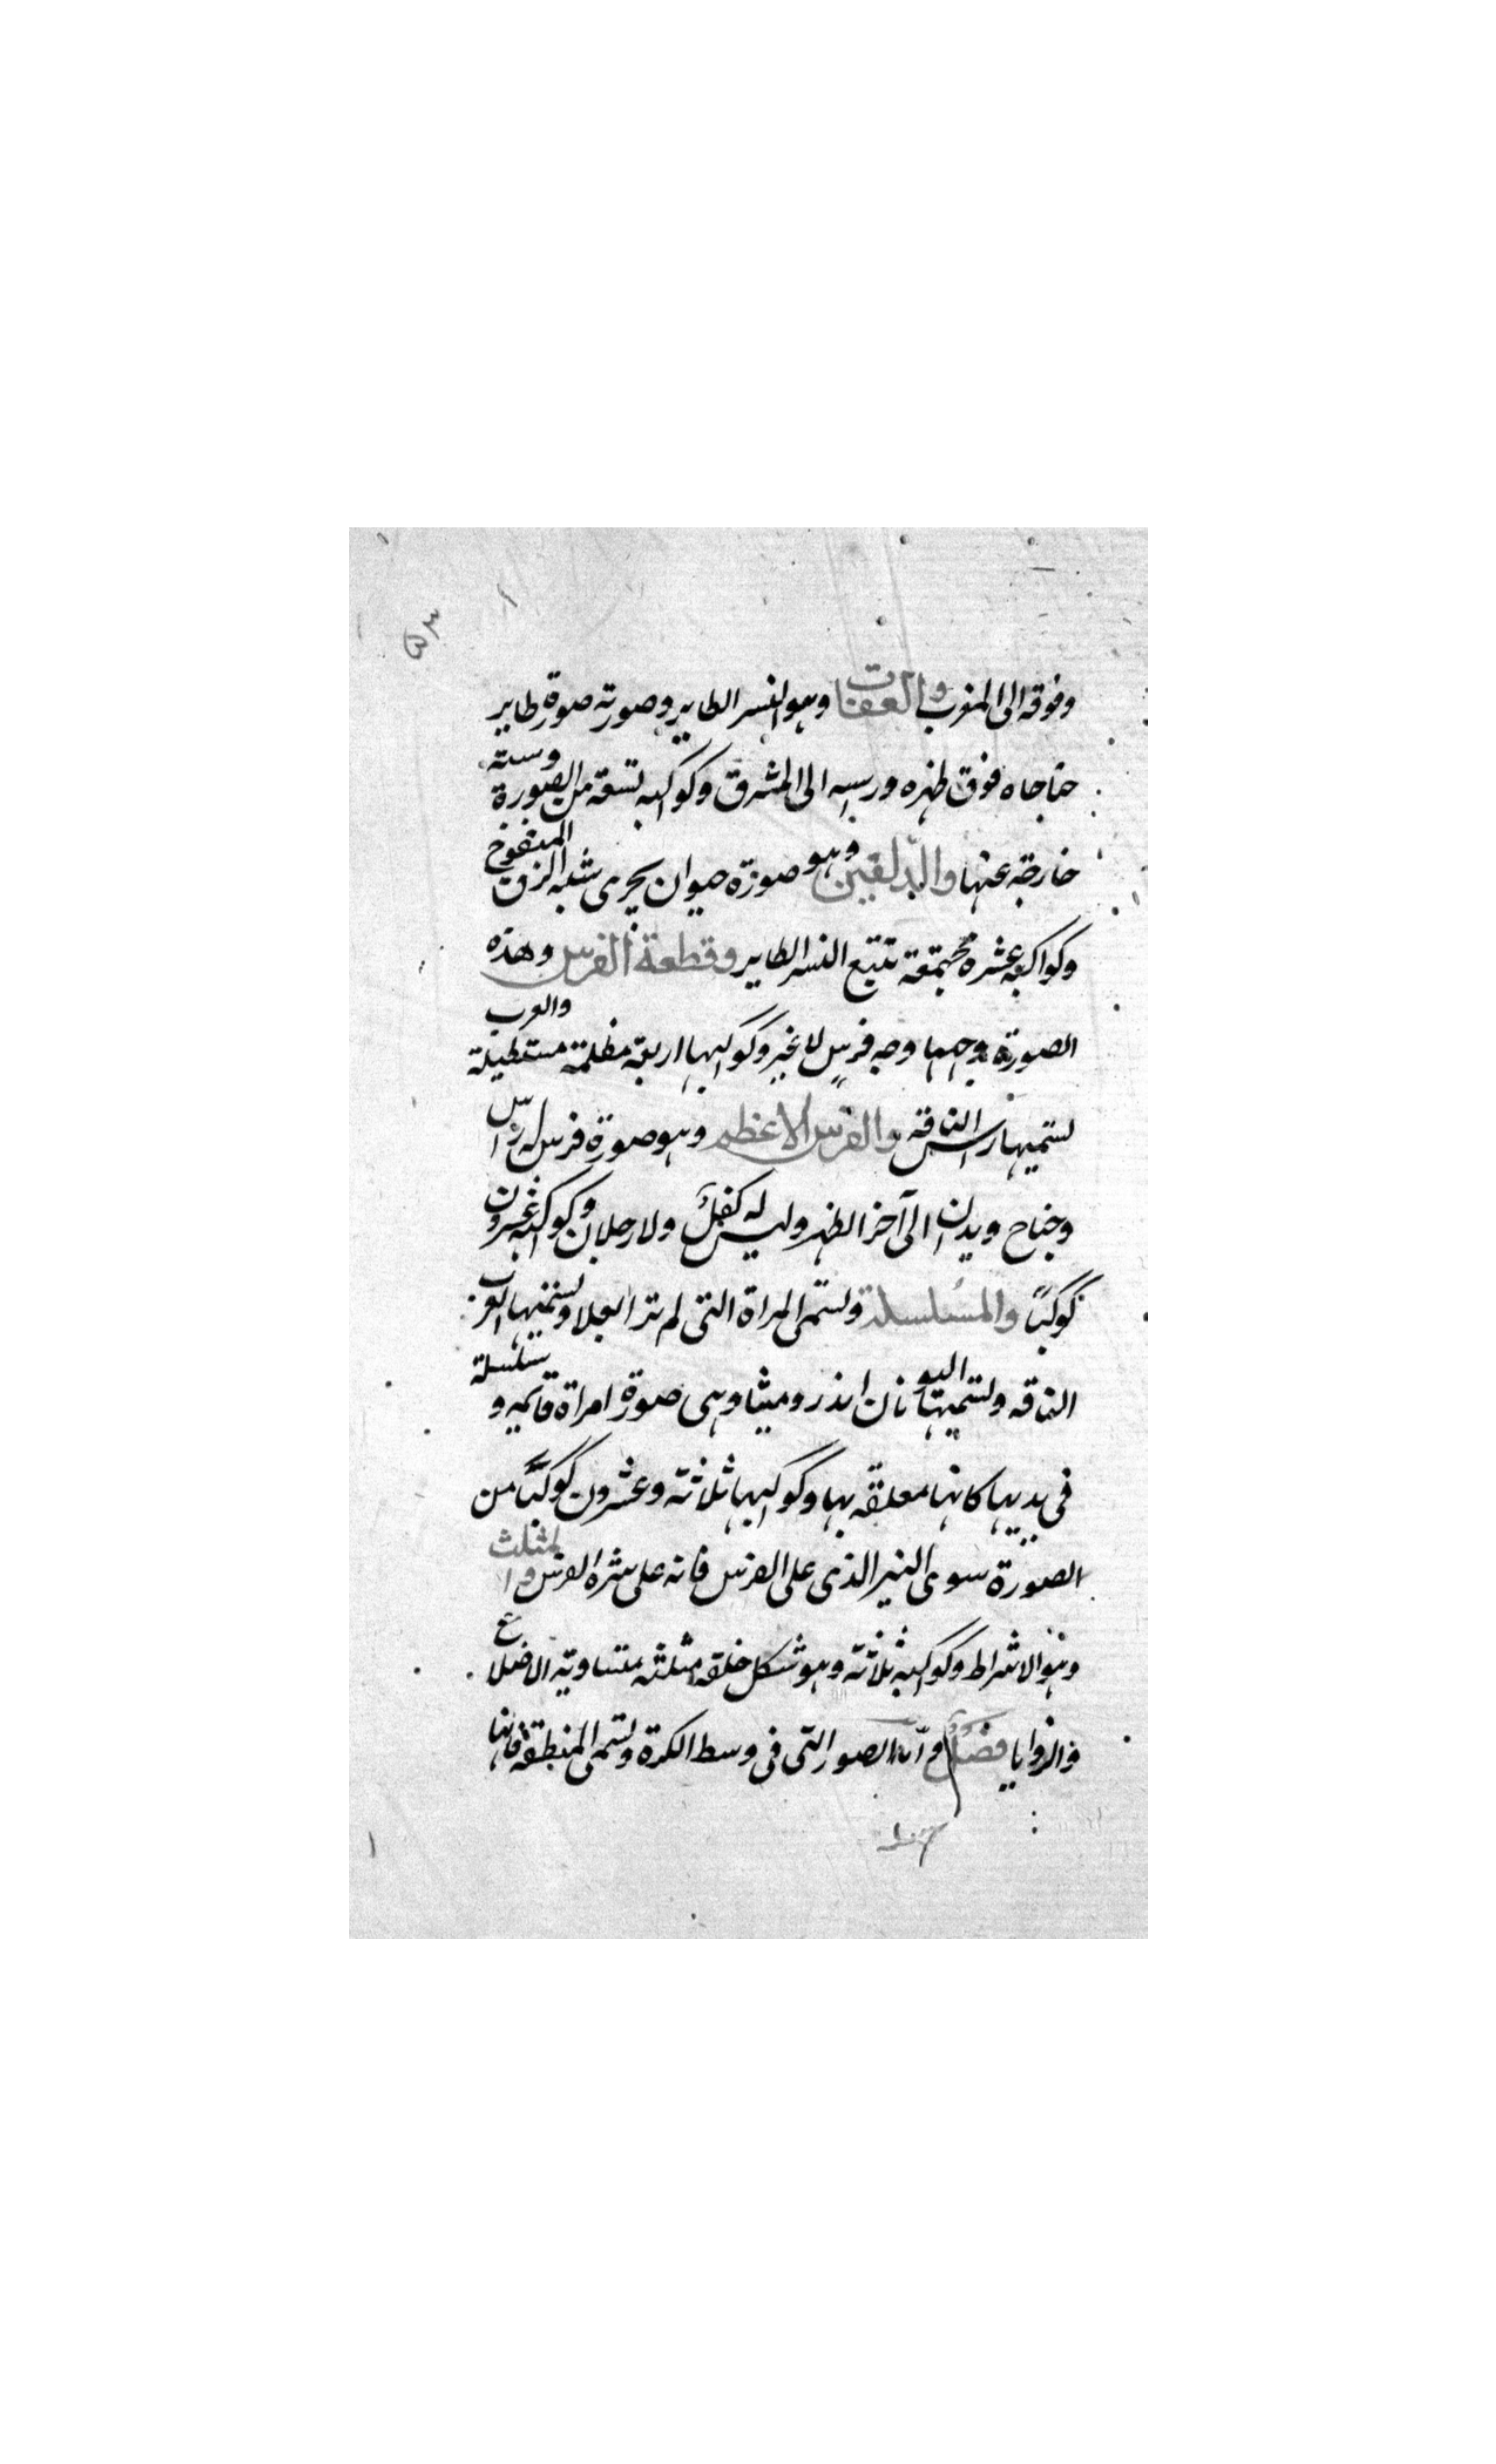 ٥٣
وفوقه الى المغرب والعقاب وهو النسر الطاير وصورته صورة طاير
جناحاه فوق ظهره وراسه الى المشرق وكواكبه تسعة من الصورة وستة
خارجة عنها والدلفين وهو صورة حيوان بحرى شبه الزق المنفوخ
وكواكبه عشرة مجتمعة تتبع النسر الطاير وقطعة الفرس وهذه
الصورة وجهها وجه فرس لا غير وكواكبها اربعة مظلمة مستطيلة والعرب
تسميها راس الناقه والفرس الاعظم وهو صورة فرس له راس
وجناح ويدان الى آخر الظهر وليس له كفل ولا رجلان وكواكبه عشرون
كوكبًا والمسلسلة وتسمى المراة التى لم تر بعلا وتسميها العرب
الناقه وتسميها اليونان اندروميثا وهى صورة امراة قايمه و سلسلة
فى يديها كانها معلقه بها وكواكبها ثلاثة وعشرون كوكبًا من
الصورة سوى النير الذى على الفرس فانه على سرة الفرس والمثلث
وهو الاشراط وكواكبه ثلاثة وهو شكل خلقه مثلثه متساويه الاضلاع
والزوايا فصل واما الصور التى فى وسط الكرة وتسمى المنطقة فانها